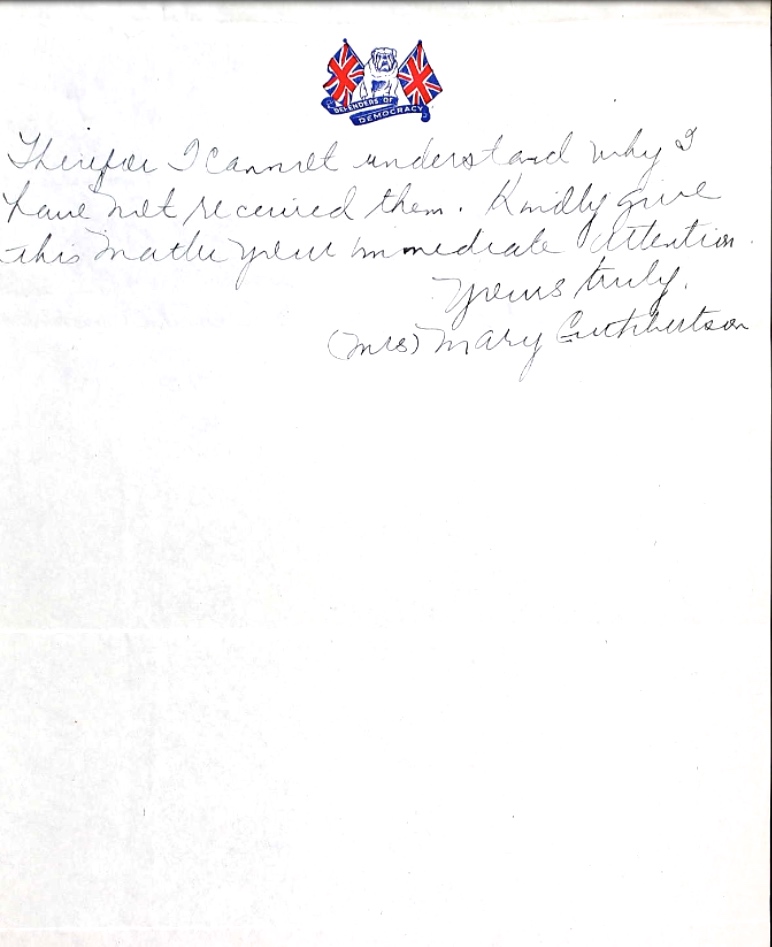 DEFENDERS OF
DEMOCRACY
Therefor I cannot understand why I
have not received them. Kindly give
this matter your immediate attention.
Yours truly,
(Mrs) Mary Cuthbertson